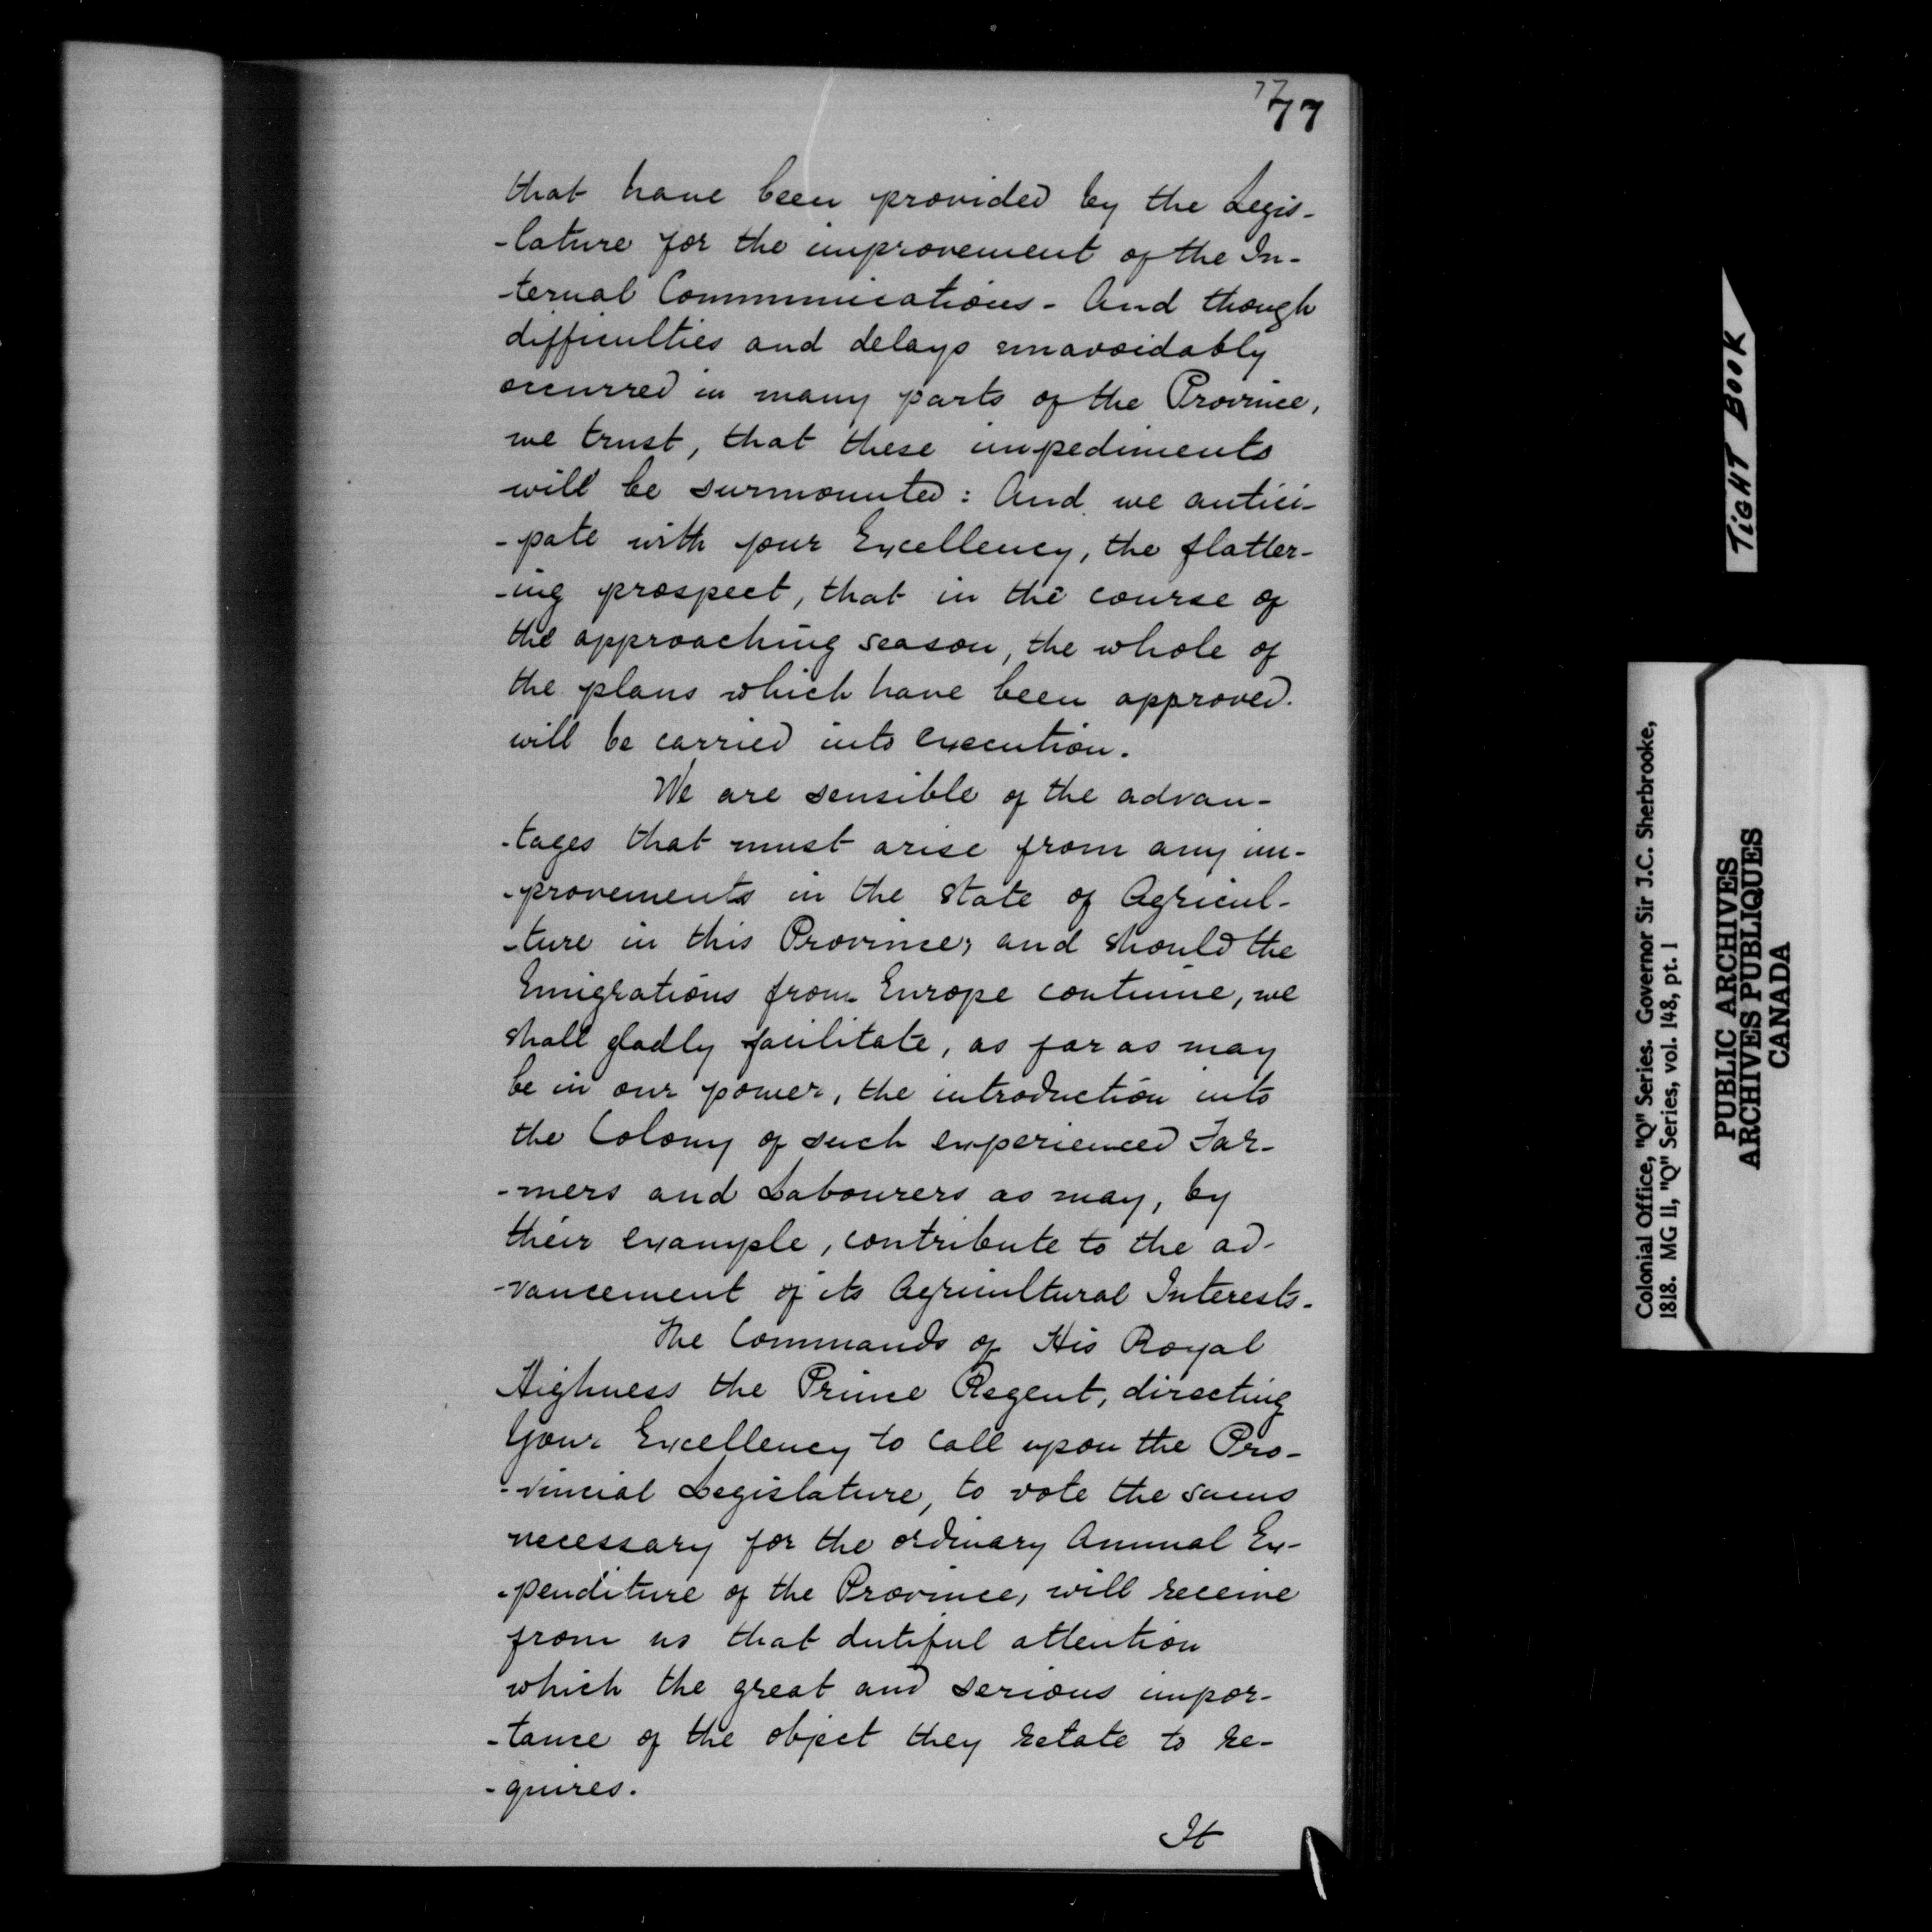 77
that have been provided by the Legis-
-lature for the improvement of the In-
-ternal Communications - And though
difficulties and delays unavoidably
occurred in many parts of the Province,
we trust, that these impediments
will be surmounted: And we antici-
-pate with your Excellency, the flatter-
-ing prospect, that in the course of
the approaching season, the whole of
the plans which have been approved.
will be carried into execution.
We are sensible of the advan-
-tages that must arise from any im-
-provements in the state of Agricul-
-ture in this Province; and should the
Emigrations from Europe continue, we
shall gladly facilitate, as far as may
be in our power, the introduction into
the Colony of such experienced Far-
-mers and Labourers as may, by
their example, contribute to the ad-
-vancement of its Agricultural Interests.
The Commands of His Royal
Highness the Prince Regent, directing
Your Excellency to call upon the Pro-
-vincial Legislature, to vote the sums
necessary for the ordinary Annual Ex-
-penditure of the Province, will receive
from us that dutiful attention
which the great and serious impor-
-tance of the object they relate to re-
-quires.
It
TIGHT BOOK
Colonial Office, "Q" Series. Governor Sir J.C. Sherbrooke,
1818. MG 11, "Q" Series, vol. 148, pt. 1
PUBLIC ARCHIVES
ARCHIVES PUBLIQUES
CANADA